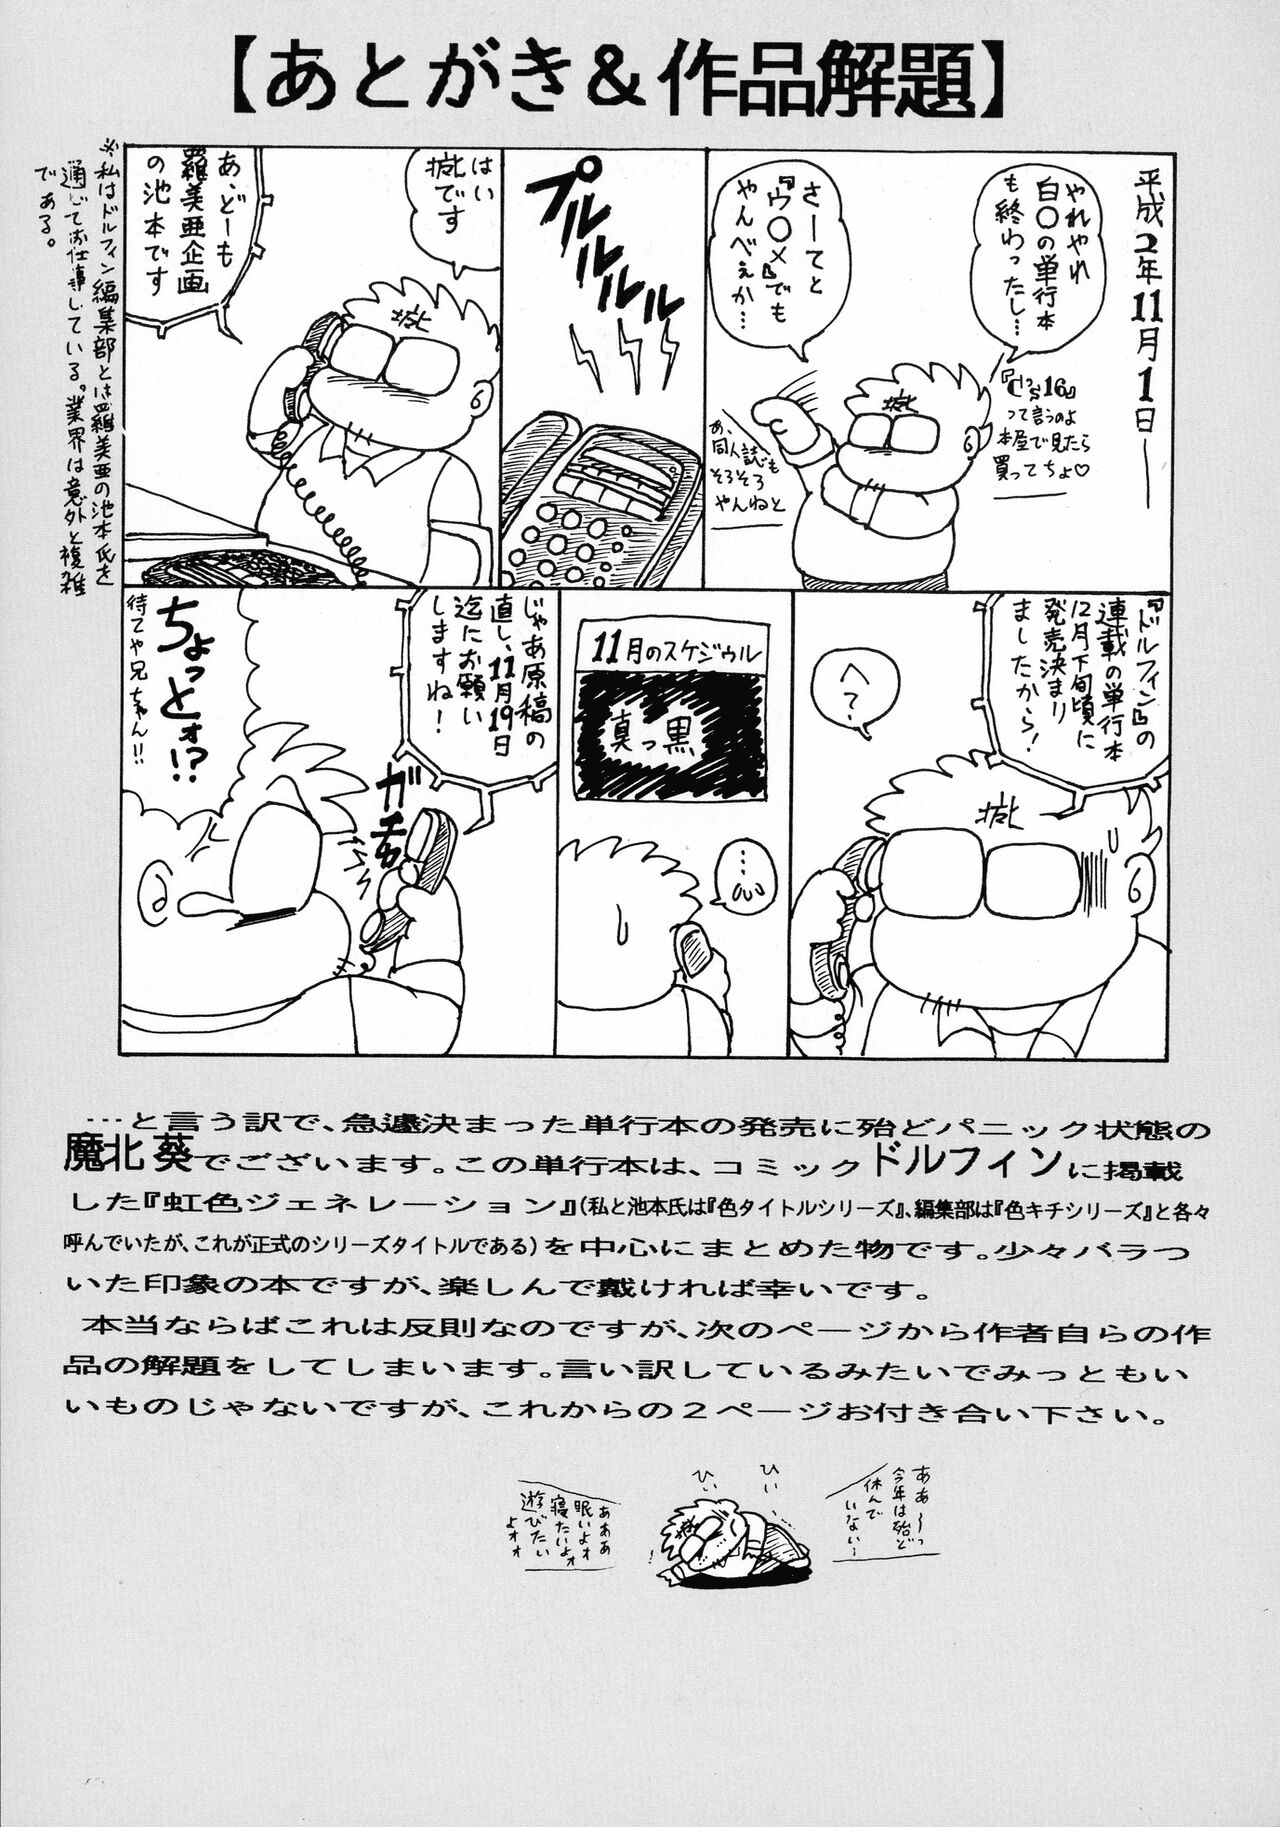 【あとがき&作品解題】
平成2年11月1日──
やれやれ
白〇の単行本
も終わったし…
『C's16』
って言うのよ
本屋で見たら
買ってちょ♡
さーてと
『ウ〇×』でも
やんべぇか…
あ、
同人誌も
そろそろ
やんねと
プルルルル
はい
北です
あ、どーも
羅美亜企画
の池本です
※私はドルフィン編集部とは羅美亜の池本氏を
通じてお仕事している。業界は意外と複雑
である。
『ドルフィン』の
連載の単行本
12月下旬頃に
発売決まり
ましたから!
へ?
11月のスケジウル
真っ黒
…
じゃあ原稿の
直し、11月19日
迄にお願い
しますね!
ガチャ
ちょっとォ!?
待てや兄ちゃん!!
…と言う訳で、急遽決まった単行本の発売に殆どパニック状態の
魔北葵でございます。この単行本は、コミックドルフィンに掲載
した『虹色ジェネレーション』(私と池本氏は『色タイトルシリーズ』、編集部は『色キチシリーズ』と各々
呼んでいたが、これが正式のシリーズタイトルである)を中心にまとめた物です。少々バラつ
いた印象の本ですが、楽しんで戴ければ幸いです。
本当ならばこれは反則なのですが、次のページから作者自らの作
品の解題をしてしまいます。言い訳しているみたいでみっともい
いものじゃないですが、これからの2ページお付き合い下さい。
ああ〜っ
今年は殆ど
休んで
いない…
ひい
ひい
あああ
眠いよォ
寝たいよォ
遊びたい
よォォ